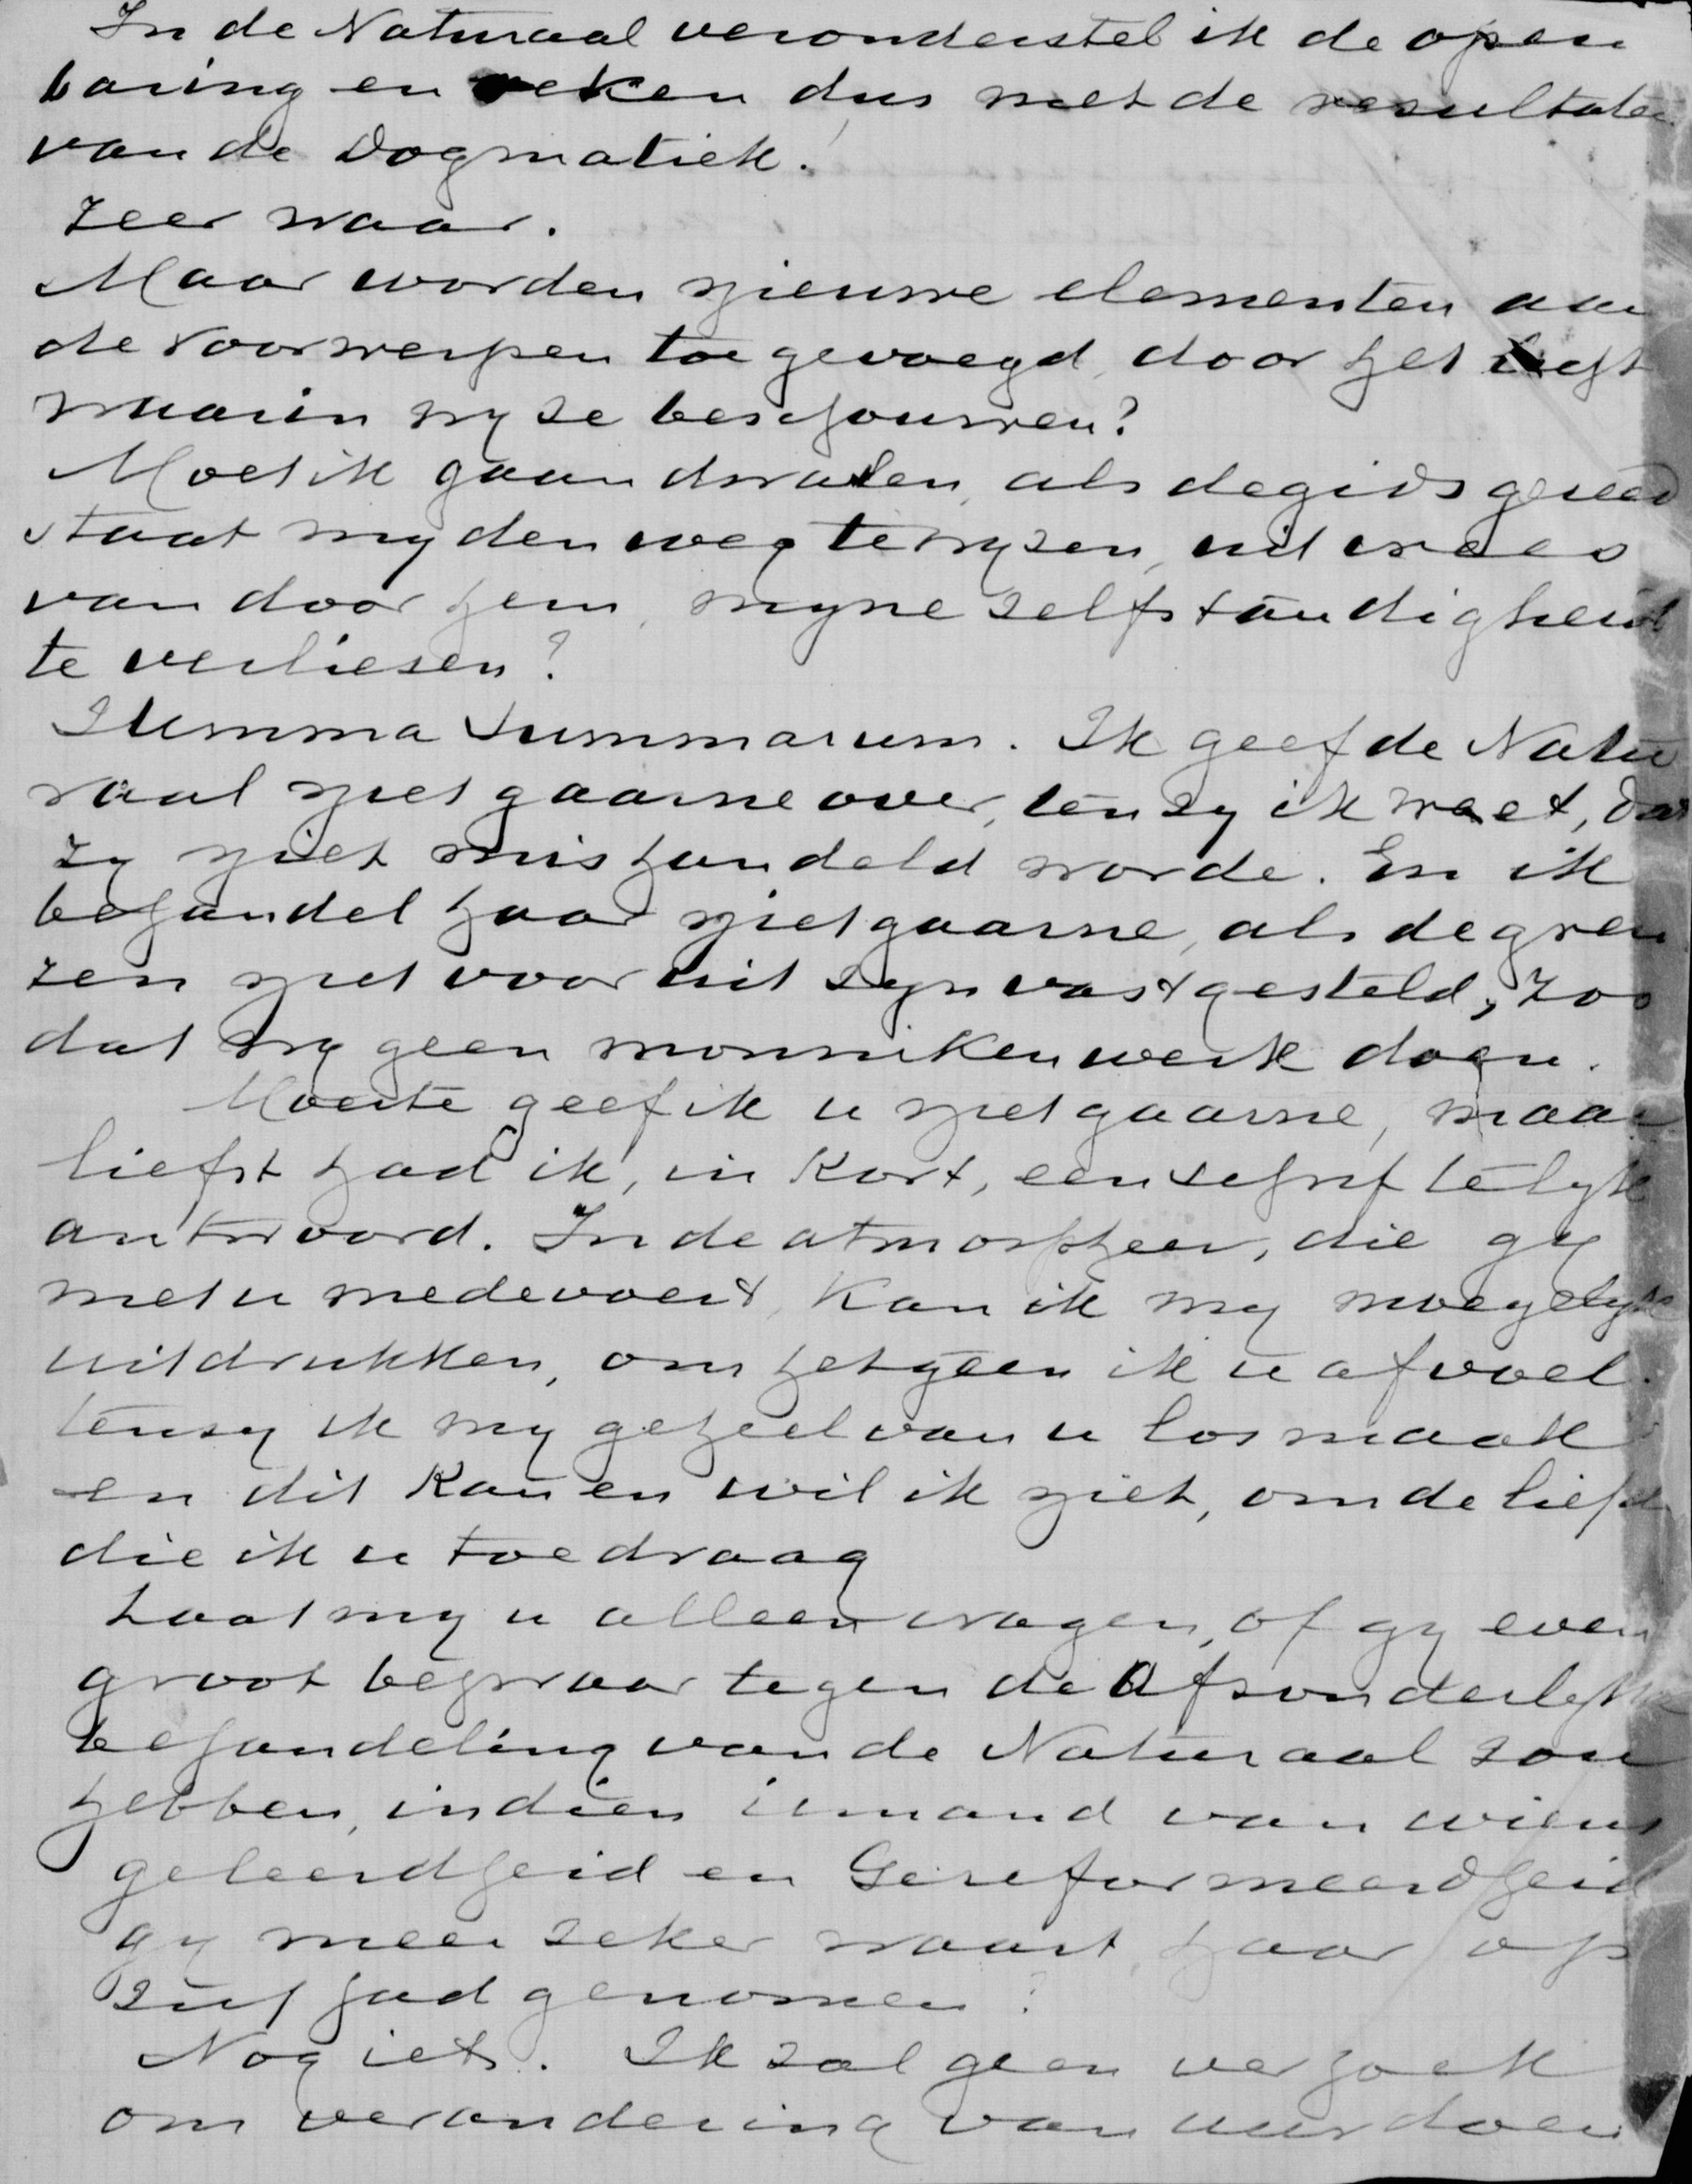 In de Naturaal veronderstel ik de open
baring en reken dus met de resultaten
van de Dogmatiek.
Zeer waar.
Maar worden nieuwe elementen aan
de voorwerpen toegevoegd, door het licht
waarin wy ze beschouwen?
Moet ik gaan dwalen, als de gids gereed
staat my den weg te wyzen, uit vrees
van door hem, myne zelfstandigheid
te verliezen?
Summa Summarum. Ik geef de Natu
raal niet gaarne over, tenzy ik weet, dat
zy niet mishandeld worde. En ik
behandel haar niet gaarne, als de gren
zen niet vooruit zyn vastgesteld, zoo
dat wy geen monnikenwerk doen.
Moeite geef ik u niet gaarne, maar
liefst had ik, in kort, een schriftelyk
antwoord. In de atmospheer, die gy
met u medevoert, kan ik my moeyelyk
uitdrukken, om hetgeen ik u afvoel.
tenzy ik my geheel van u losmaak
en dit kan en wil ik niet, om de liefde
die ik u toedraag
Laat my u alleen vragen, of gy even
groot bezwaar tegen de Afzonderlyke
behandeling van de Naturaal zou
hebben, indien iemand van wiens
geleerdheid en Gereformeerdheid
gy meer zeker waart, haar op
zich had genomen?
Nog iets. Ik zal geen verzoek
om verandering van uur doen